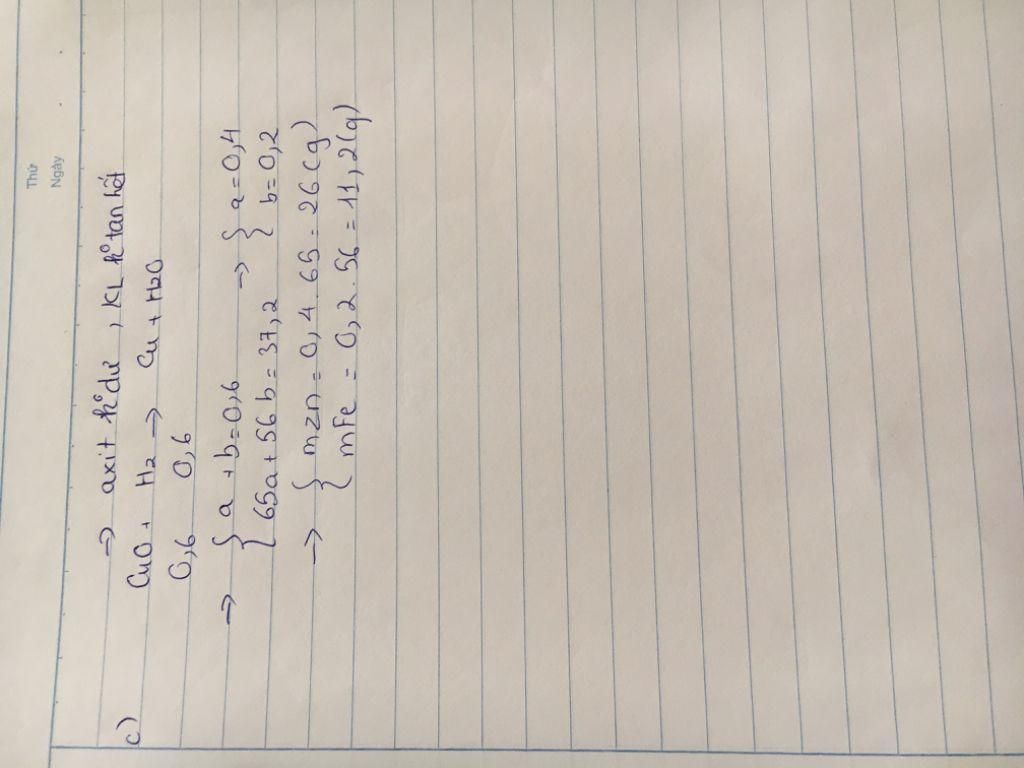 Thứ
Ngày
=> axit ko dư, KL ko tan hết
c) CuO + H2 -> Cu + H2O
0,6 0,6
=> { a + b = 0,6 -> { a = 0,4
{ 65a + 56b = 37,2 { b = 0,2
-> { mZn = 0,4 . 65 = 26(g)
{ mFe = 0,2 . 56 = 11,2(g)